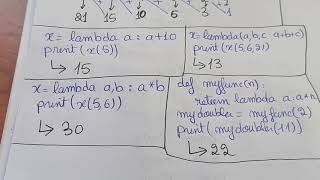 21 15 10 6 3 1
x = lambda a : a+10
print (x(5))
↳ 15
x = lambda(a,b,c : a+b+c)
print (x(5,6,2))
↳ 13
x = lambda a,b : a*b
print (x(5,6))
↳ 30
def myfunc(n):
return lambda a: a*n
mydoubler = myfunc(2)
print( mydoubler(11))
↳ 22